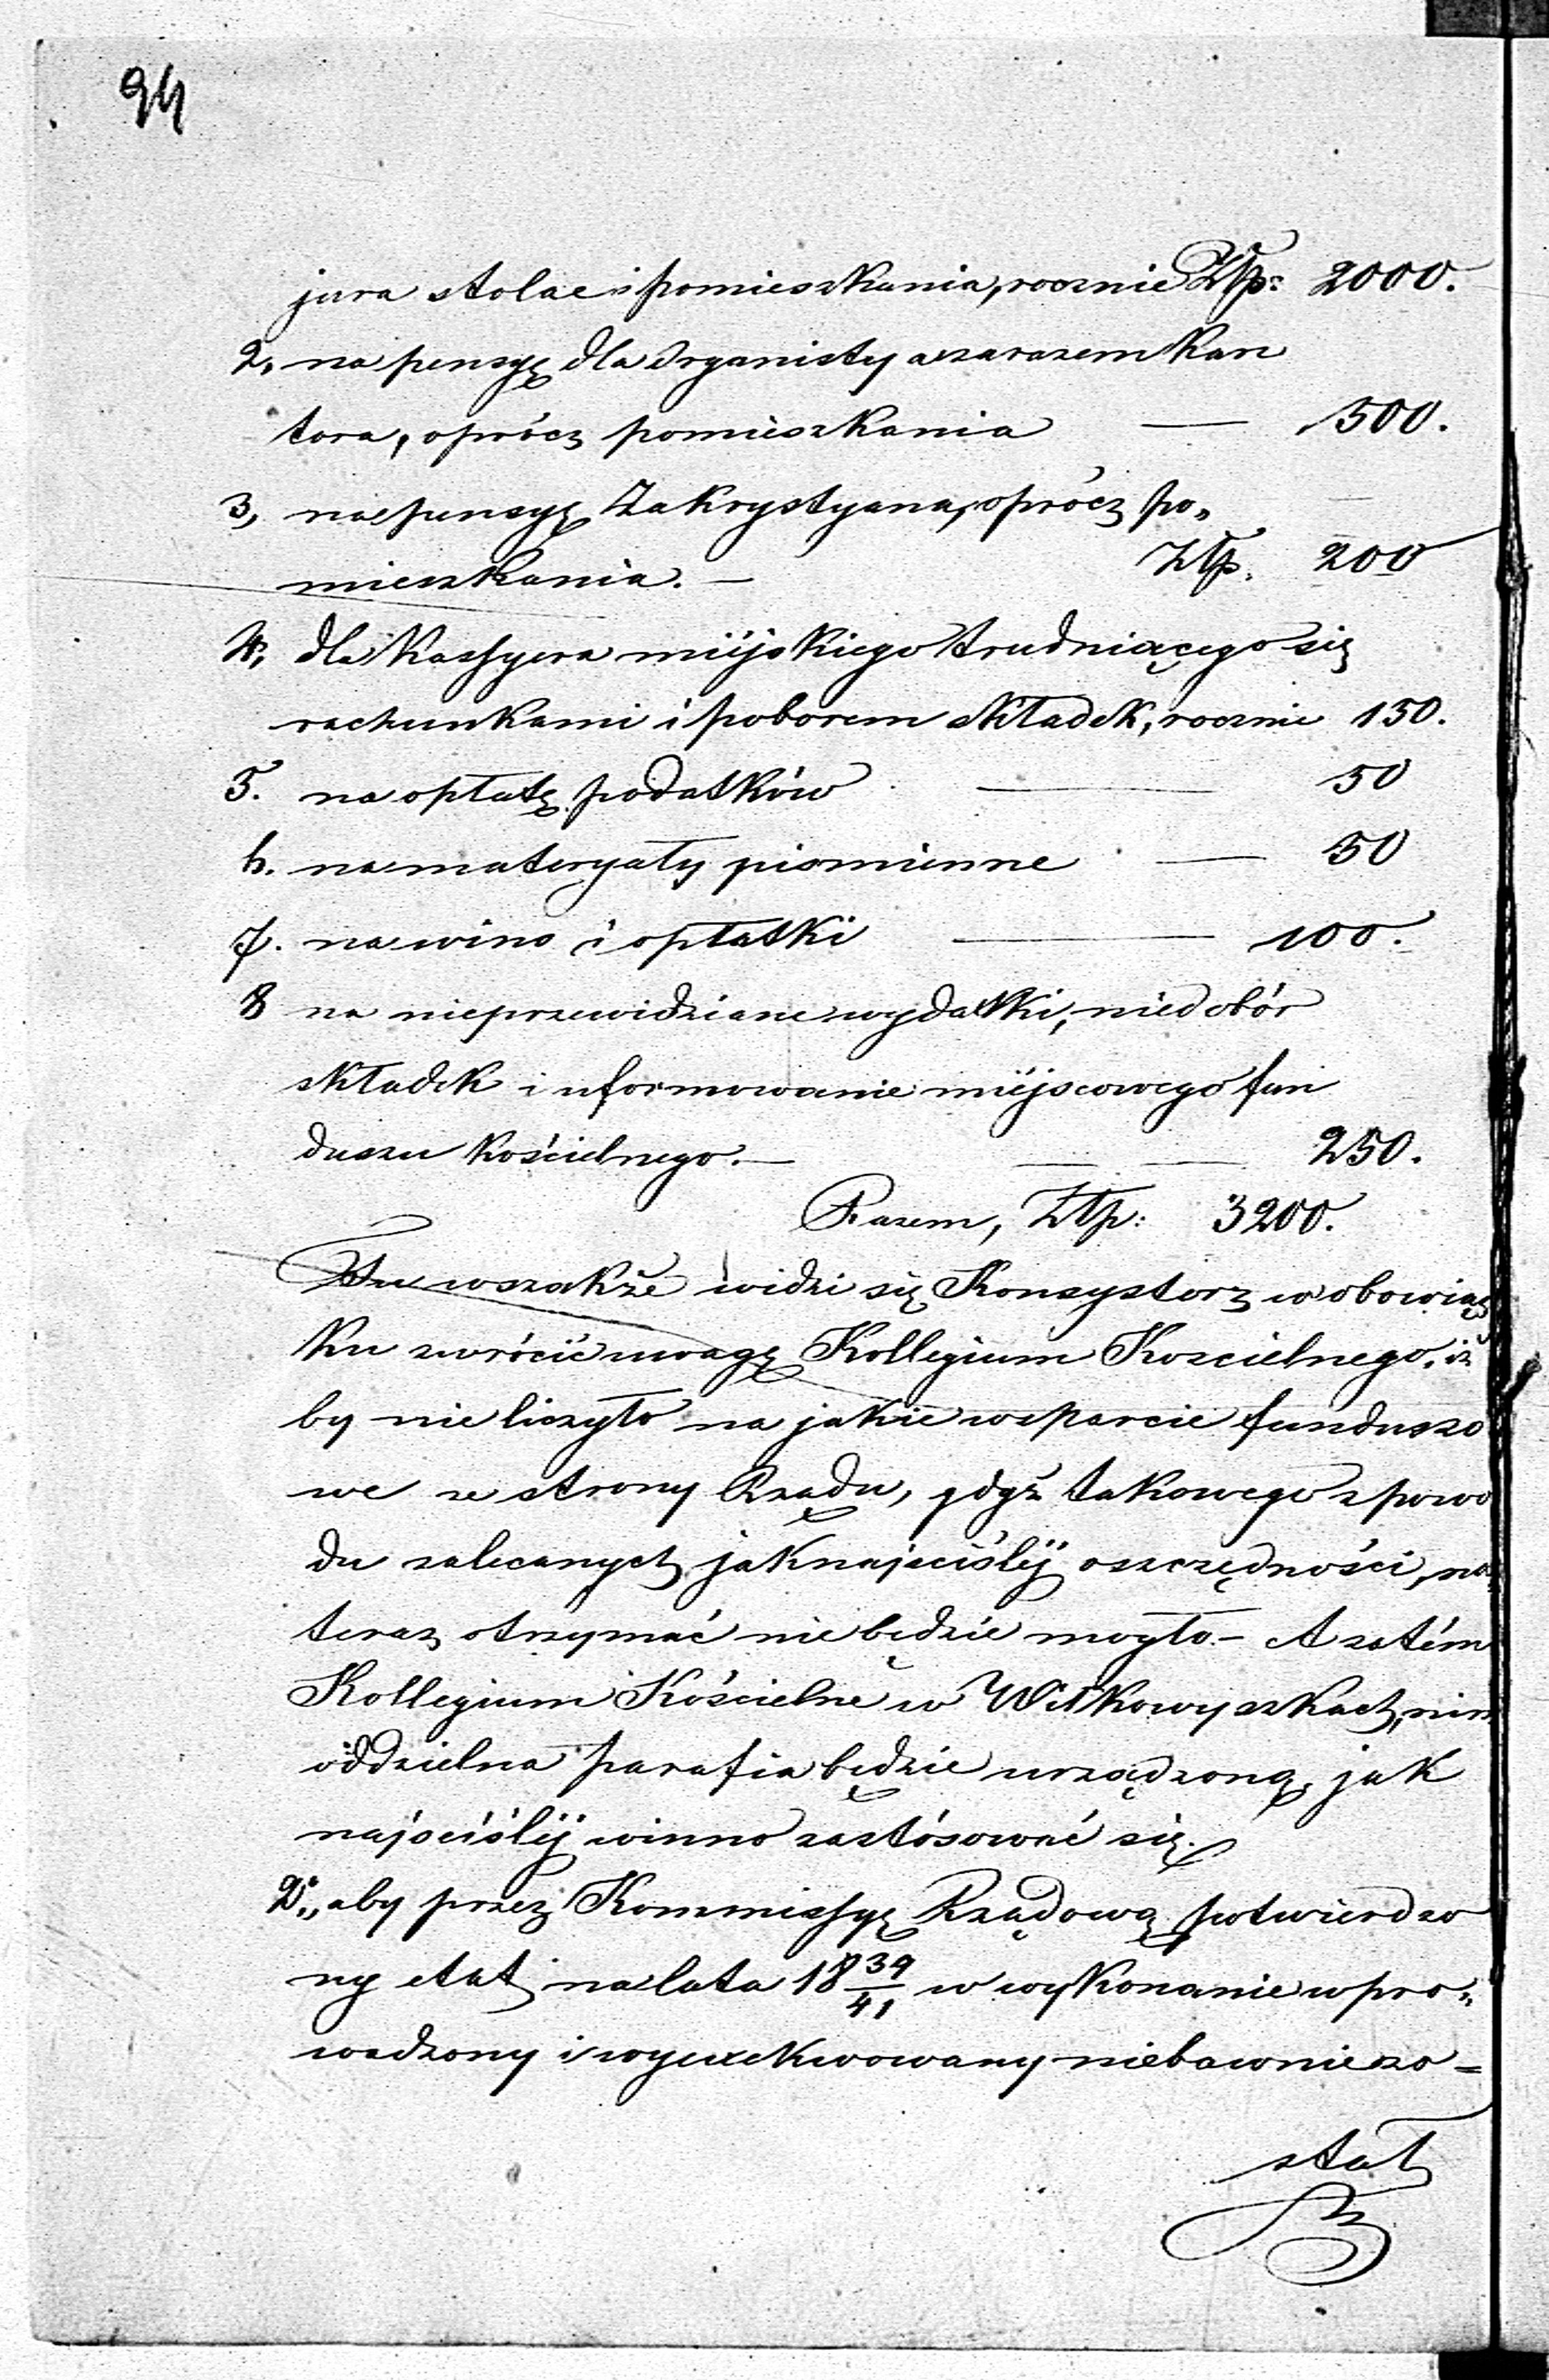 94
jura stolae i pomieszkania, rocznie Złp: 2000.
2, na pensyę dla Organisty a zarazem Kan
tora, oprócz pomieszkania — 500.
3, na pensyę Zakrystyana, oprócz po„
mieszkania. — Złp. 200
4, dla Kassyera miéjskiego trudniącego się
rachunkami i poborem składek, rocznie 150.
5. na opłatę podatków — 50
6. na materyały piśmienne — 50
7. na wino i opłatki — 100.
8 na nieprzewidziane wydatki, niedobór
składek i uformowanie miéjscowego fun
duszu Kościelnego. — 250.
Razem, Złp: 3200.
Tu wszakże widzi się Konsystorz w obowiąz
ku zwrócić uwagę Kollegium Koscielnego, iż
by nie liczyło na jakie wsparcie funduszo
we ze strony Rządu, gdyż takowego z powo
du zalecanych jaknajściśléj oszczędności, na
teraz otrzymać nie będzie mogło. – A zatém
Kollegium Kościelne w Wiłkowyszkach, nim
oddzielna parafia będzie urządzoną, jak
najściśléj winno zastósować się.
2„ aby przez Kommissyę Rządową potwierdzo
ny etat na lata 18 39/41 w wykonanie wpro„
wadzony i wyexekwowany niebawnie zo=
stał